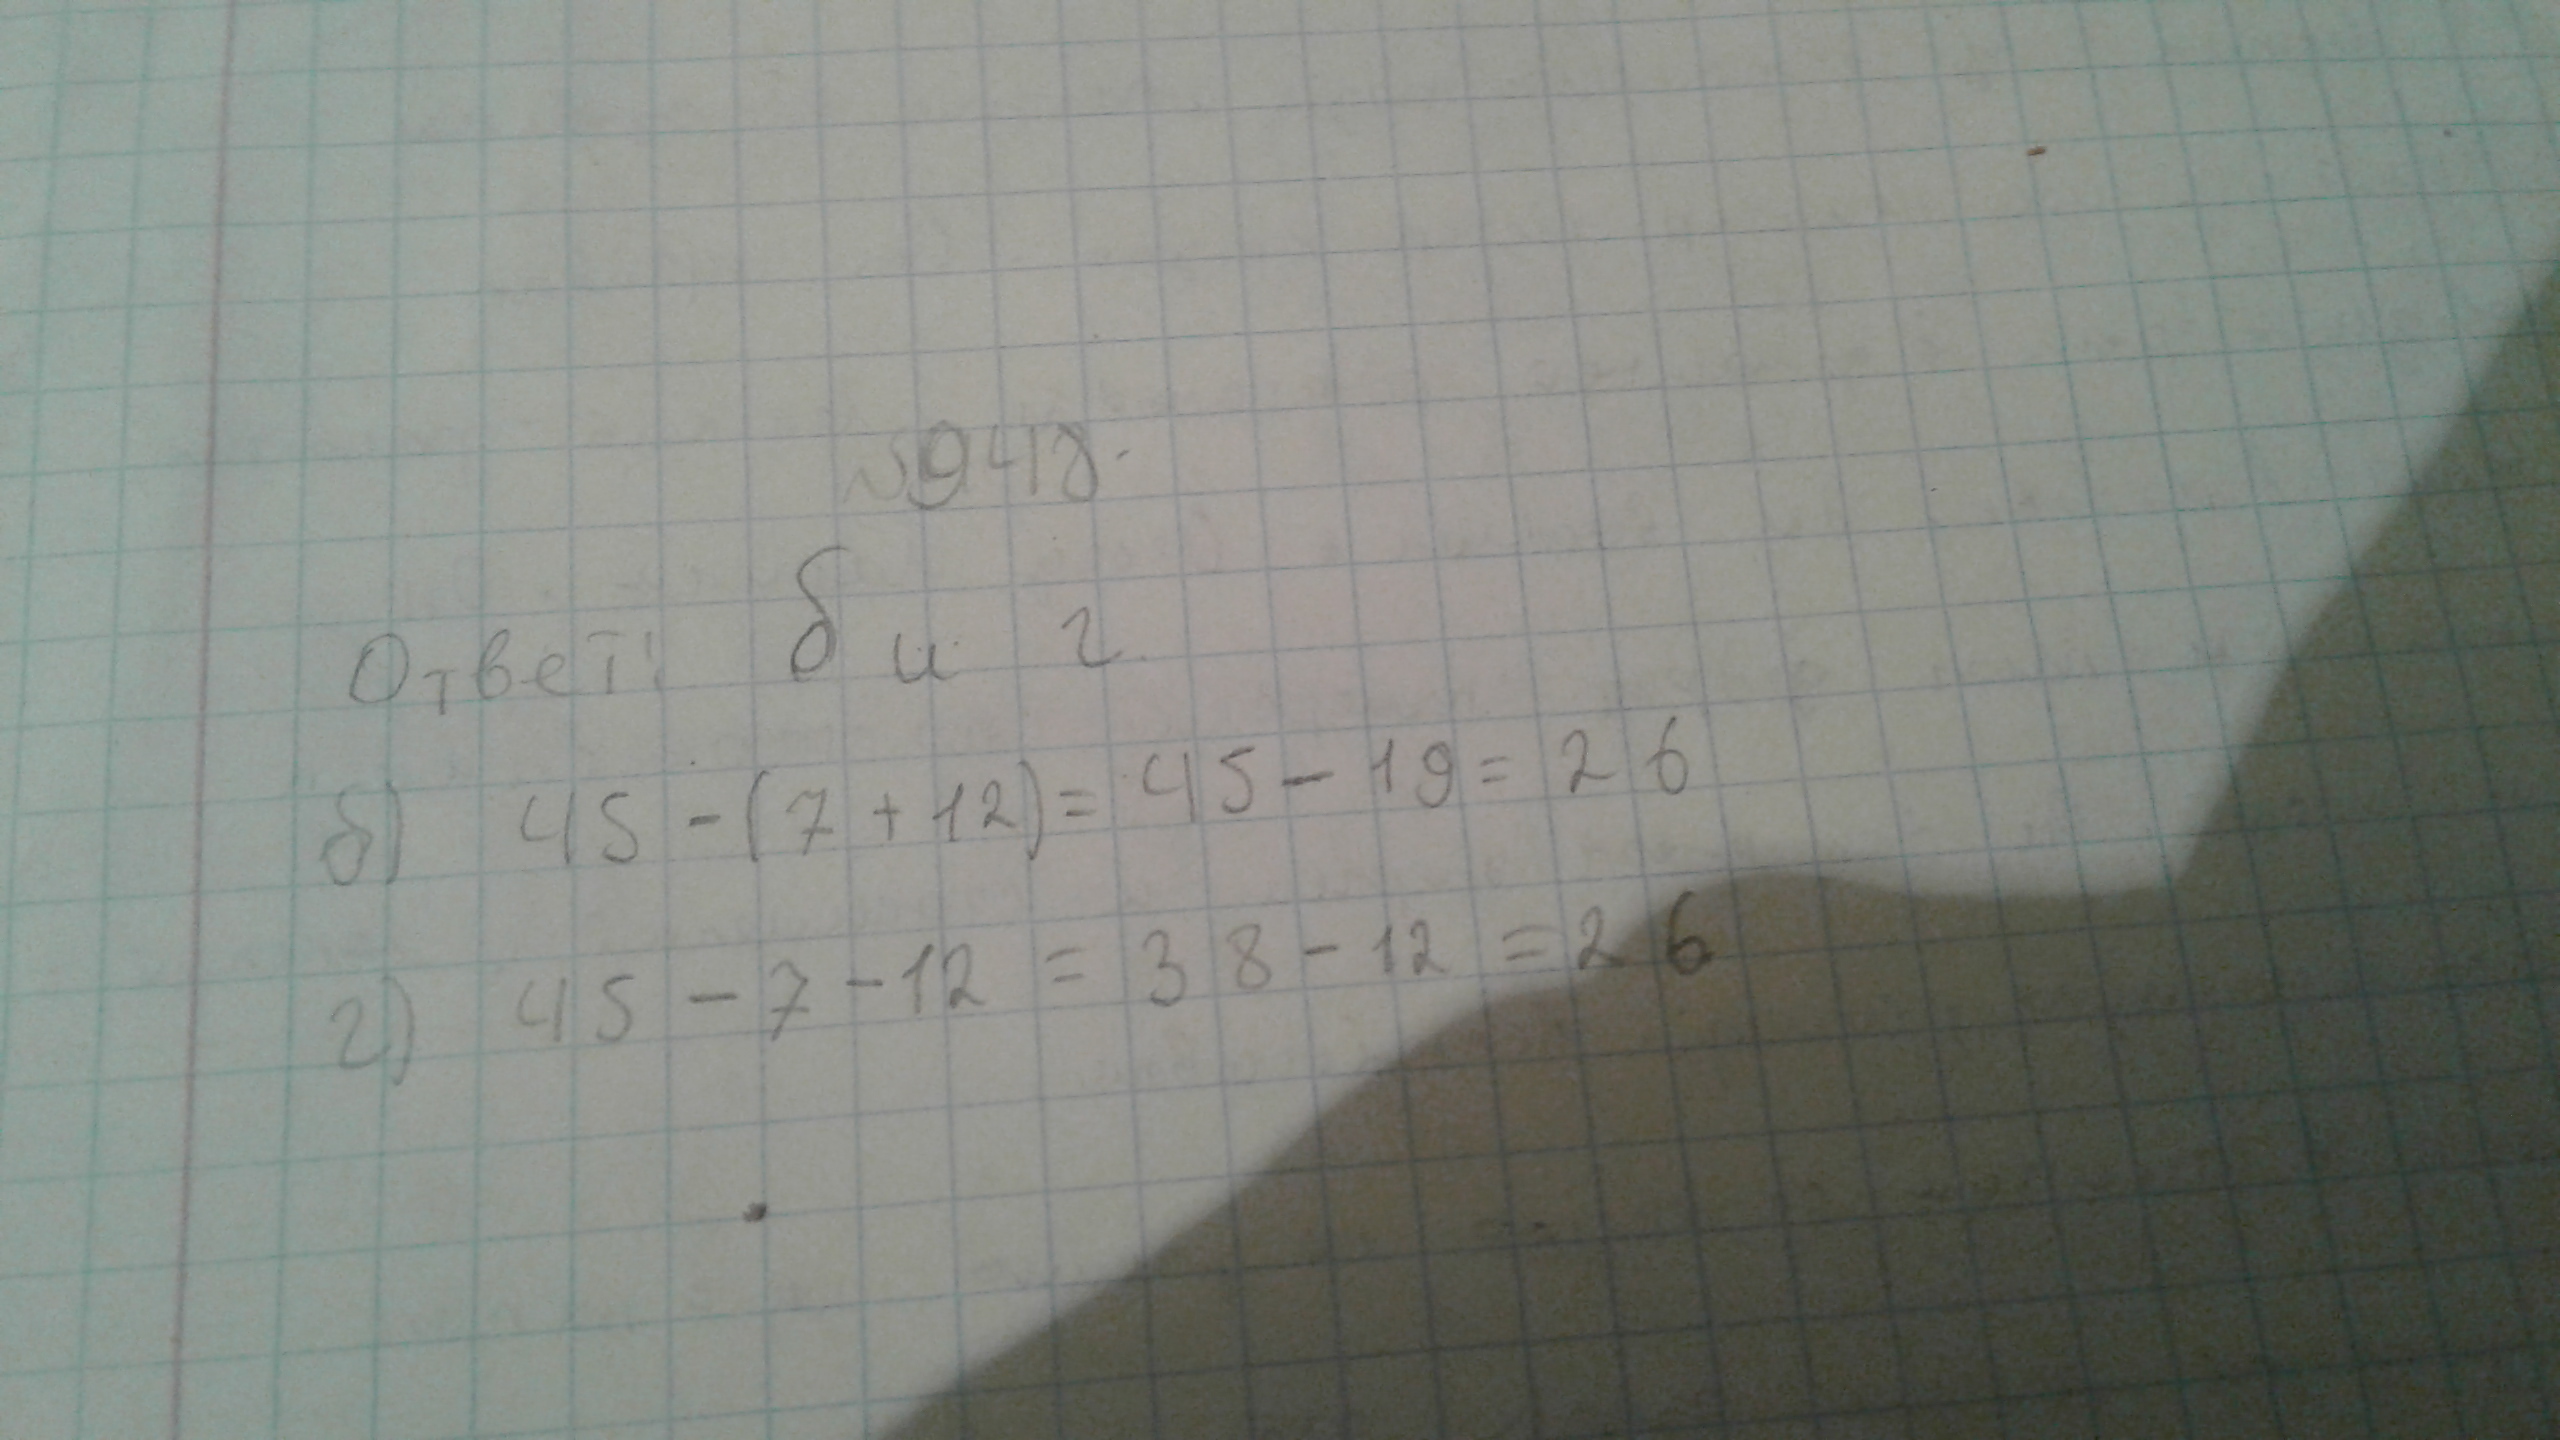 №948.
Ответ: б и г.
б) 45 - (7 + 12) = 45 - 19 = 26
г) 45 - 7 - 12 = 38 - 12 = 26